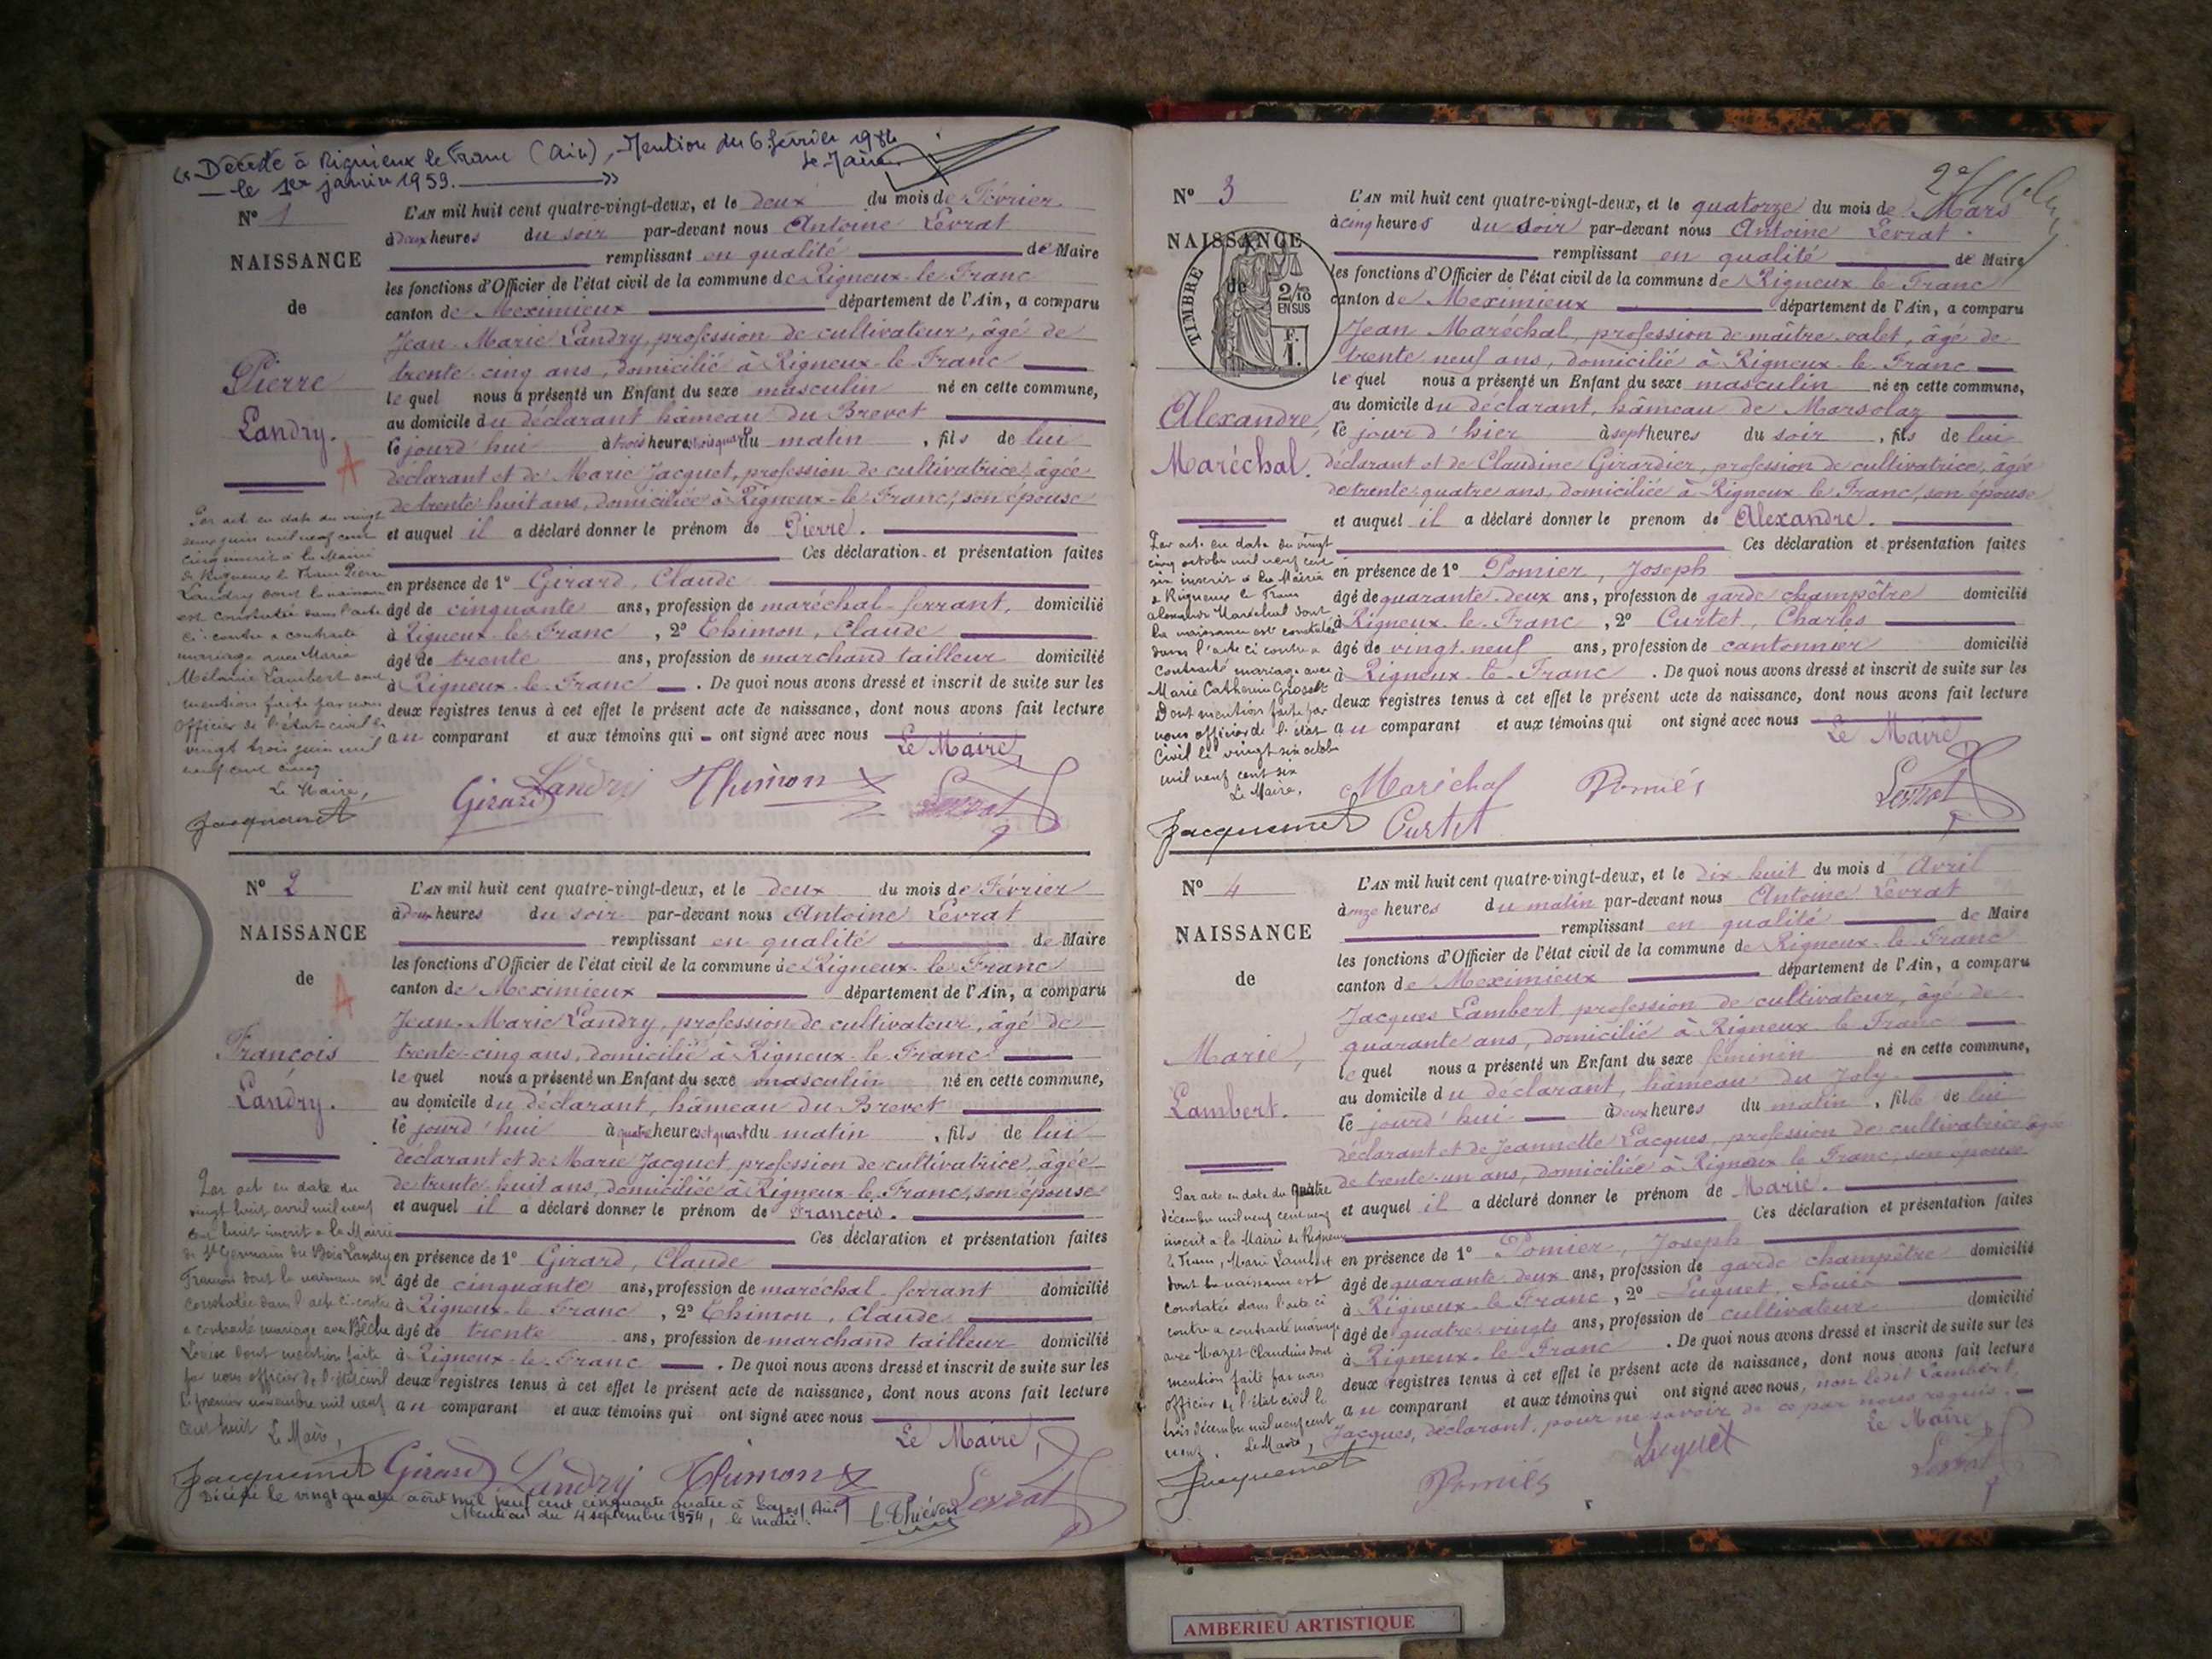 « Décédé à Rignieux le Franc (Ain), Mention du 6 février
le 1er janvier 1959. » Le Maire
N° 1
NAISSANCE
de
Pierre
Landry.
A
L'AN mil huit cent quatre-vingt-deux, et le deux du mois de Février
à deux heures du soir par-devant nous Antoine Levrat
remplissant en qualité de Maire
les fonctions d'Officier de l'état civil de la commune de Rigneux-le-Franc
canton de Meximieux département de l'Ain, a comparu
Jean-Marie Landry, profession de cultivateur, âgé de
trente-cinq ans, domicilié à Rigneux-le-Franc
lequel nous a présenté un Enfant du sexe masculin né en cette commune,
au domicile du déclarant hâmeau du Brevet
le jourd'hui à trois heures trois quarts du matin, fils de lui
déclarant et de Marie Jacquet, profession de cultivatrice, âgée
de trente-huit ans, domiciliée à Rigneux-le-Franc, son épouse
et auquel il a déclaré donner le prénom de Pierre.
Ces déclaration et présentation faites
en présence de 1° Girard, Claude
âgé de cinquante ans, profession de maréchal-ferrant, domicilié
à Rigneux-le-Franc, 2° Thimon, Claude
âgé de trente ans, profession de marchand tailleur domicilié
à Rigneux-le-Franc. De quoi nous avons dressé et inscrit de suite sur les
deux registres tenus à cet effet le présent acte de naissance, dont nous avons fait lecture
au comparant et aux témoins qui ont signé avec nous
Le Maire,
Girard Landry Thimon Levrat
Par acte en date du vingt
deux juin mil neuf cent
cinq inscrit à la Mairie
de Rigneux le Franc Pierre
Landry dont la naissance
est constatée dans l'acte
ci-contre a contracté
mariage avec Marie
Mélanie Lambert dont
mention faite par nous
Officier de l'état civil le
vingt trois juin mil
neuf cent cinq
Le Maire,
Jacquemet
N° 2
NAISSANCE
de
A
François
Landry.
L'AN mil huit cent quatre-vingt-deux, et le deux du mois de Février
à deux heures du soir par-devant nous Antoine Levrat
remplissant en qualité de Maire
les fonctions d'Officier de l'état civil de la commune de Rigneux-le-Franc
canton de Meximieux département de l'Ain, a comparu
Jean-Marie Landry, profession de cultivateur, âgé de
trente-cinq ans, domicilié à Rigneux-le-Franc
lequel nous a présenté un Enfant du sexe masculin né en cette commune,
au domicile du déclarant, hâmeau du Brevet
le jourd'hui à quatre heures et quart du matin, fils de lui
déclarant et de Marie Jacquet, profession de cultivatrice, âgée
de trente-huit ans, domiciliée à Rigneux-le-Franc, son épouse
et auquel il a déclaré donner le prénom de François.
Ces déclaration et présentation faites
en présence de 1° Girard, Claude
âgé de cinquante ans, profession de maréchal-ferrant domicilié
à Rigneux-le-Franc, 2° Thimon, Claude
âgé de trente ans, profession de marchand tailleur domicilié
à Rigneux-le-Franc. De quoi nous avons dressé et inscrit de suite sur les
deux registres tenus à cet effet le présent acte de naissance, dont nous avons fait lecture
au comparant et aux témoins qui ont signé avec nous
Le Maire,
Girard Landry Thimon Levrat
Par acte en date du
vingt huit avril mil neuf
cent huit inscrit à la Mairie
de St Germain du Bois Landry
François dont la naissance est
constatée dans l'acte ci-contre
a contracté mariage avec Bêche
Louise dont mention faite
par nous officier de l'état civil
le premier novembre mil neuf
cent huit Le Maire,
Jacquemet
Décédé le vingt quatre août mil neuf cent cinquante quatre à Loyes (Ain)
Mention du 4 septembre 1954, le maire
N° 3
NAISSANCE
de
TIMBRE
2/10
EN SUS
F.
1.
Alexandre
Maréchal.
L'AN mil huit cent quatre-vingt-deux, et le quatorze du mois de Mars
à cinq heures du soir par-devant nous Antoine Levrat
remplissant en qualité de Maire
les fonctions d'Officier de l'état civil de la commune de Rigneux-le-Franc
canton de Meximieux département de l'Ain, a comparu
Jean Maréchal, profession de maître-valet, âgé de
trente neuf ans, domicilié à Rigneux-le-Franc
lequel nous a présenté un Enfant du sexe masculin né en cette commune,
au domicile du déclarant, hâmeau de Marsolaz
le jour d'hier à sept heures du soir, fils de lui
déclarant et de Claudine Girardier, profession de cultivatrice, âgée
de trente-quatre ans, domiciliée à Rigneux-le-Franc, son épouse
et auquel il a déclaré donner le prenom de Alexandre.
Ces déclaration et présentation faites
en présence de 1° Pomier, Joseph
âgé de quarante-deux ans, profession de garde champêtre domicilié
à Rigneux-le-Franc, 2° Curtet, Charles
âgé de vingt-neuf ans, profession de cantonnier domicilié
à Rigneux-le-Franc. De quoi nous avons dressé et inscrit de suite sur les
deux registres tenus à cet effet le présent acte de naissance, dont nous avons fait lecture
au comparant et aux témoins qui ont signé avec nous
Le Maire
Maréchal Pomiés Levrat
Curtet
Par acte en date du vingt
cinq octobre mil neuf cent
six inscrit à la Mairie
de Rigneux le Franc
Alexandre Maréchal dont
la naissance est constatée
dans l'acte ci contre a
contracté mariage avec
Marie Catherine Grosselt
Dont mention faite par
nous officier de l'état
civil le vingt six octobre
mil neuf cent six
Le Maire,
Jacquemet
N° 4
NAISSANCE
de
Marie,
Lambert.
L'AN mil huit cent quatre-vingt-deux, et le dix-huit du mois d'Avril
à onze heures du matin par-devant nous Antoine Levrat
remplissant en qualité de Maire
les fonctions d'Officier de l'état civil de la commune de Rigneux-le-Franc
canton de Meximieux département de l'Ain, a comparu
Jacques Lambert profession de cultivateur, âgé de
quarante ans, domicilié à Rigneux-le-Franc
lequel nous a présenté un Enfant du sexe féminin né en cette commune,
au domicile du déclarant, hâmeau du Joly
le jourd'hui à deux heures du matin, fille de lui
déclarant et de Jeannette Lacques, profession de cultivatrice âgée
de trente-un ans, domiciliée à Rigneux le Franc, son épouse
et auquel il a déclaré donner le prénom de Marie.
Ces déclaration et présentation faites
en présence de 1° Pomier, Joseph
âgé de quarante-deux ans, profession de garde champêtre domicilié
à Rigneux-le-Franc, 2° Luquet, Louis
âgé de quatre-vingts ans, profession de cultivateur domicilié
à Rigneux-le-Franc. De quoi nous avons dressé et inscrit de suite sur les
deux registres tenus à cet effet le présent acte de naissance, dont nous avons fait lecture
au comparant et aux témoins qui ont signé avec nous, non ledit Lambert,
Jacques, déclarant, pour ne savoir de ce par nous requis.
Le Maire
Pomiés Luquet Levrat
Par acte en date du quatre
décembre mil neuf cent neuf
inscrit à la Mairie de Rigneux
le Franc, Marie Lambert
dont la naissance est
constatée dans l'acte ci
contre a contracté mariage
avec Mazet Claudius dont
mention faite par nous
officier de l'état civil le
trois décembre mil neuf cent
neuf. Le Maire,
Jacquemet
AMBERIEU ARTISTIQUE